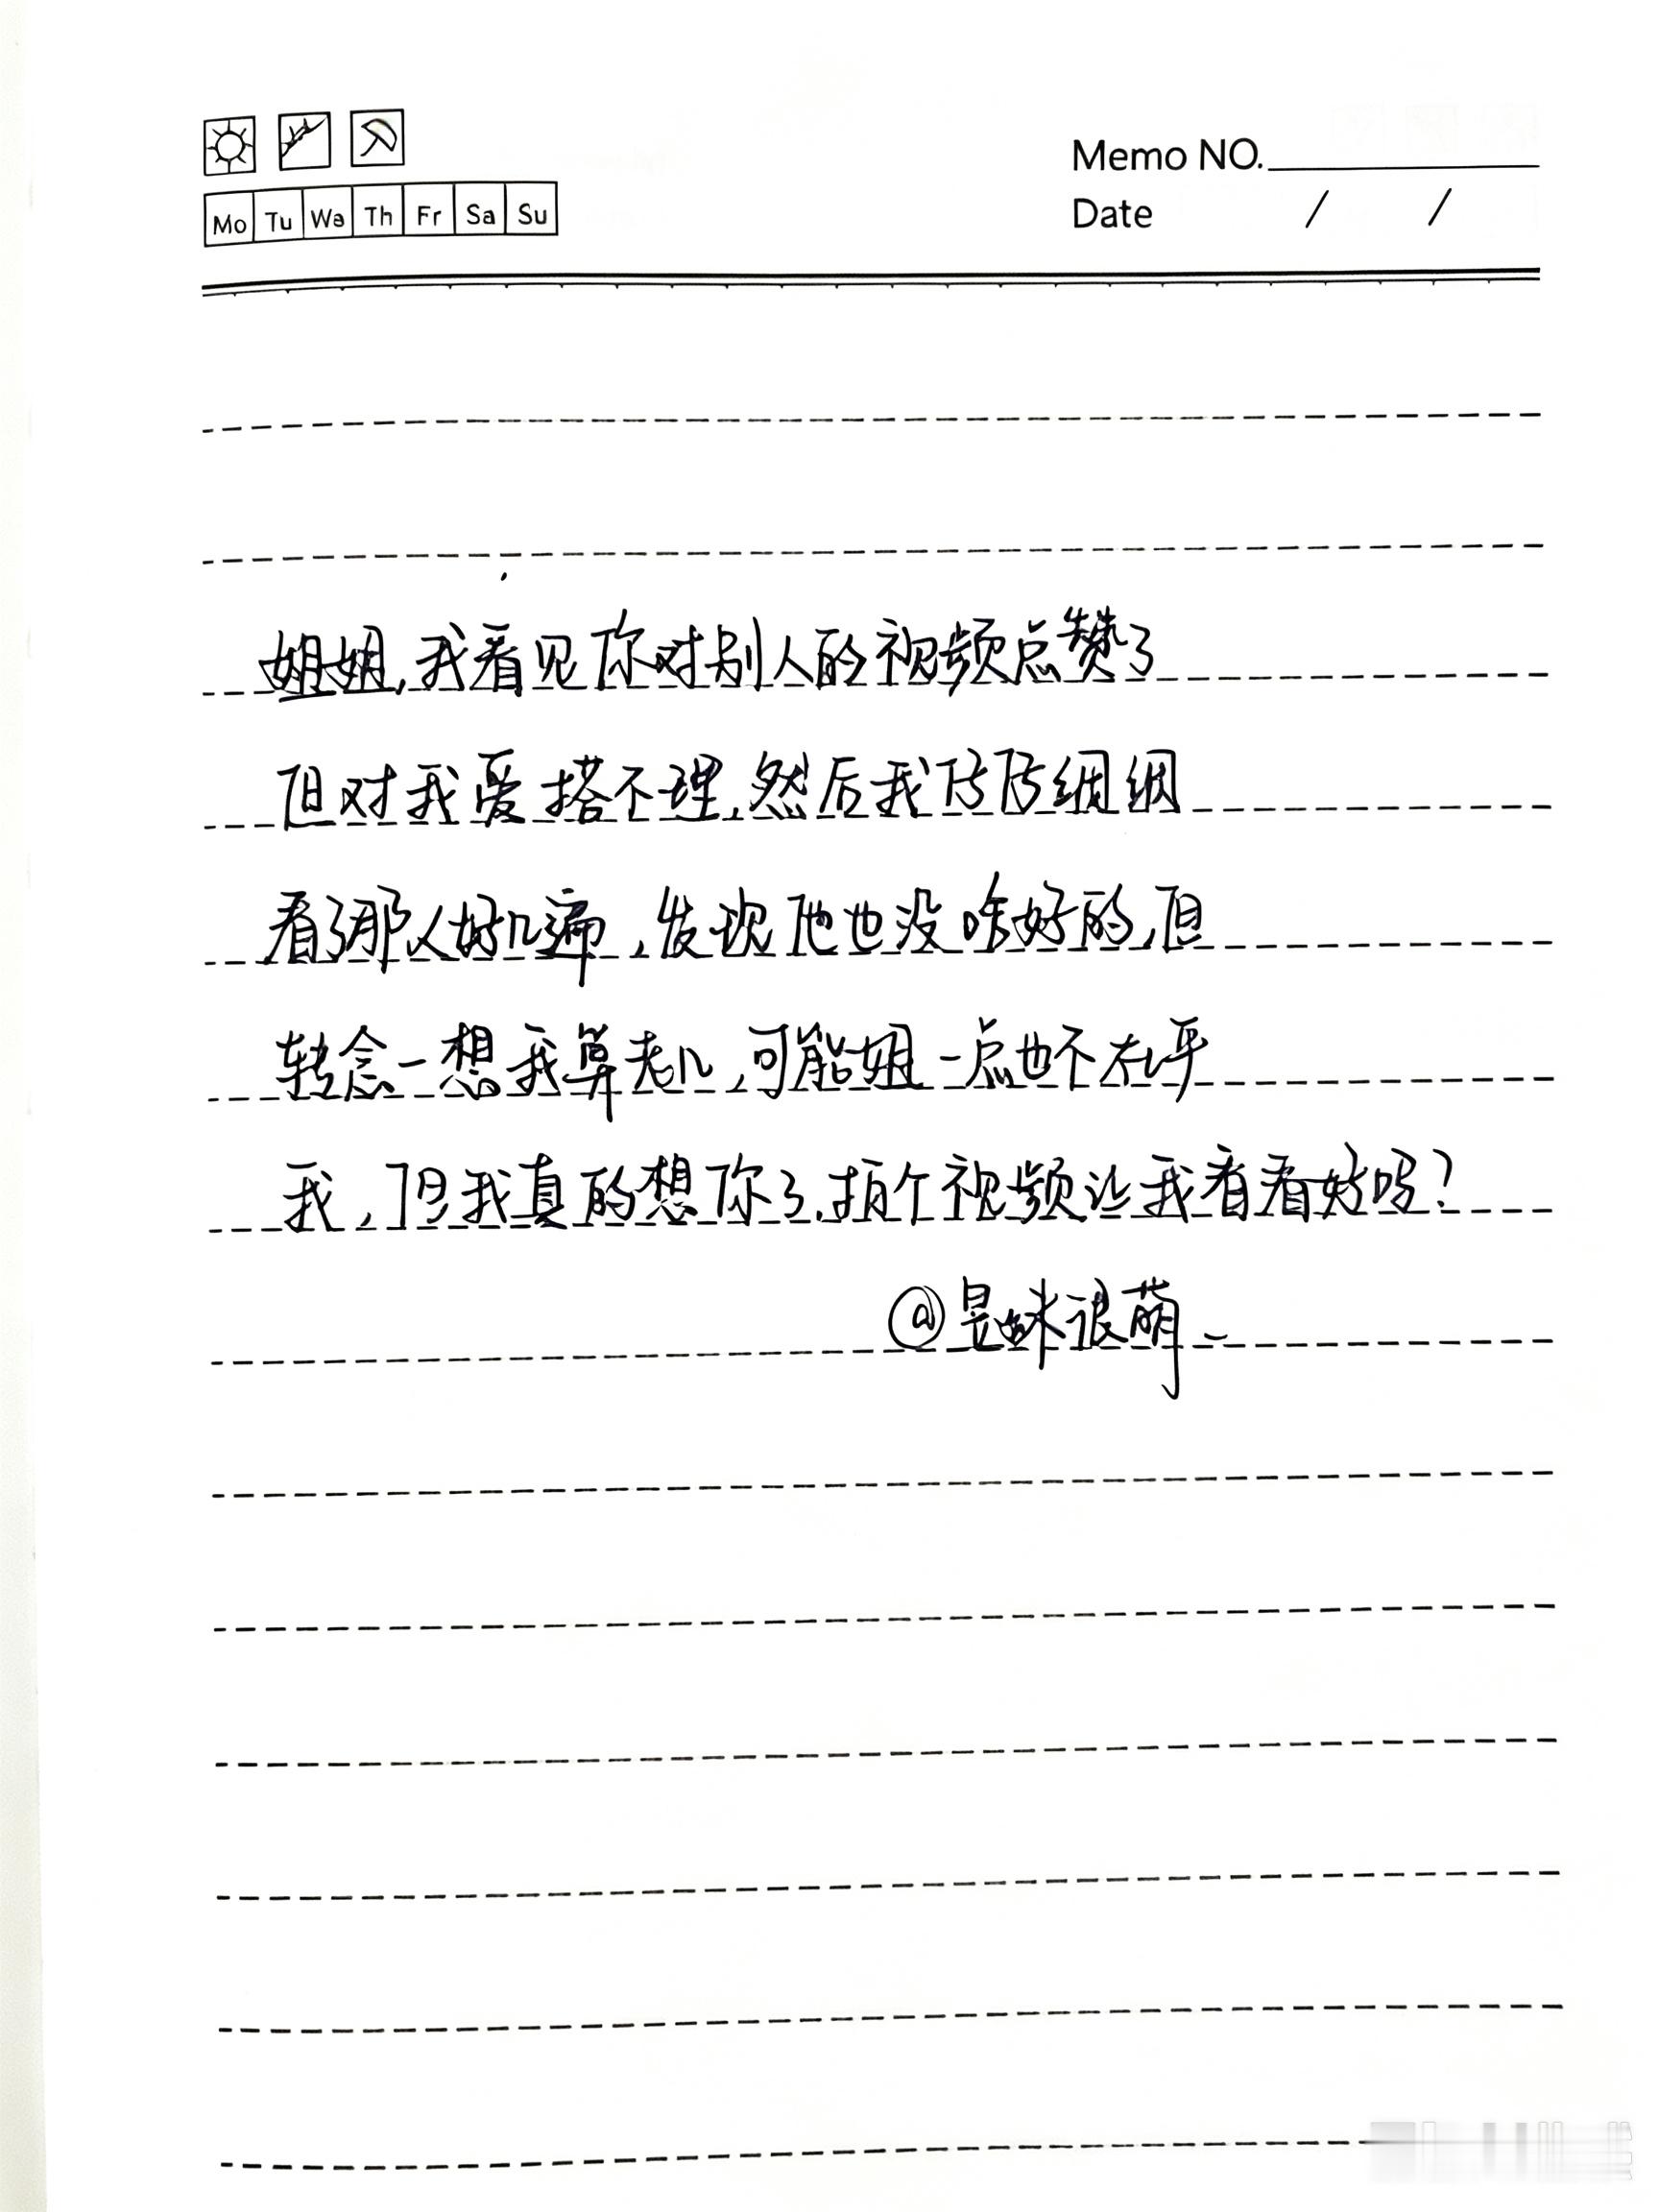 Memo NO.
Mo Tu We Th Fr Sa Su
Date / /
姐姐,我看见你对别人的视频点赞了
但对我爱搭不理,然后我仔仔细细
看了那人好几遍,发现他也没啥好的,但
转念一想我算老几,可能姐一点也不在乎
我,但我真的想你了.拍个视频让我看看好吗?
@昱咪很萌